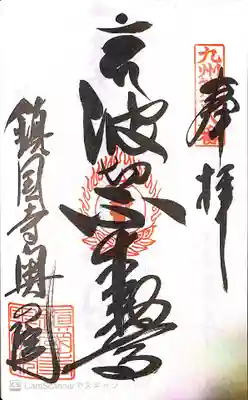 九州
奉拝
波切不動尊
鎮国寺奥の院
CS CamScannerでスキャン